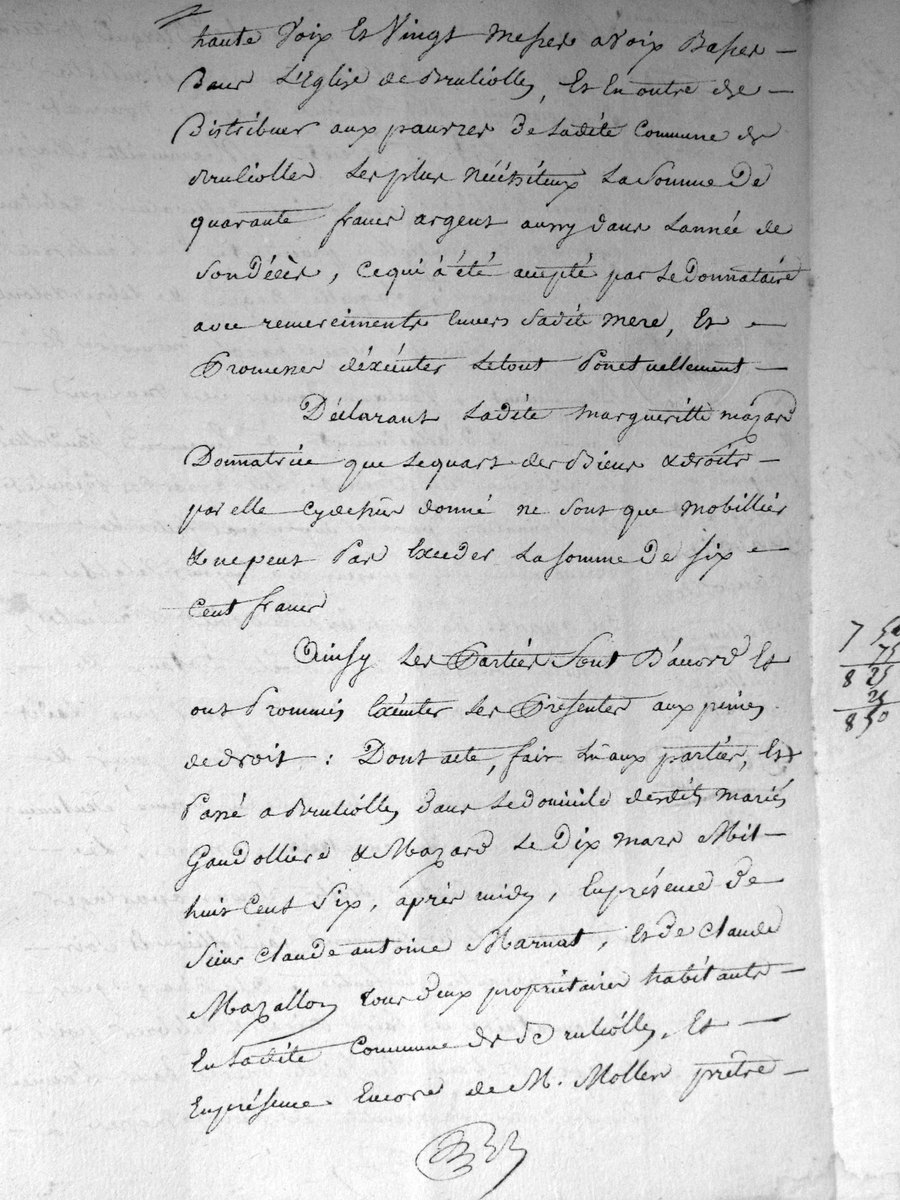 haute Voix Et Vingt messes a Voix Basses
Dans L'Eglise de Bruliolles, Et En outre de
Distribuer aux pauvres de Ladite Commune de
Bruliolles Les plus Nécéssiteux La Somme De
quarante francs argent aussy dans Lannée de
Son Décès, Cequi à été accepté par Le Donnataire
avec remerciments Envers Sadite mere, Et
Promesses déxécuter Letout Ponctuellement
Déclarant Ladite margueritte mazard
Donnatrice que Lequart des Biens & droits
par elle Cydessus donné ne Sont que mobillier
& ne peut Pas Excéder La Somme De Six
Cent francs
Ainsy Les Parties Sont D'accord Et
ont Prommis Exécuter Les Présentes aux peines
de droit : Dont acte, fait Lu aux parties, Et
Passé a Brulliolles dans Le domicile desdits mariés
Gaudollière & Mazard Le Dix mars Mil
huit Cent Six, après midy, En présence de
Sieur Claude antoine Marnat, Et De Claude
Mazallon tous deux propriétaires habitants
En Ladite Commune de Brulliolles, Et
En présence Encore de M. Mollen prêtre
7 50
75
8 25
25
8 50